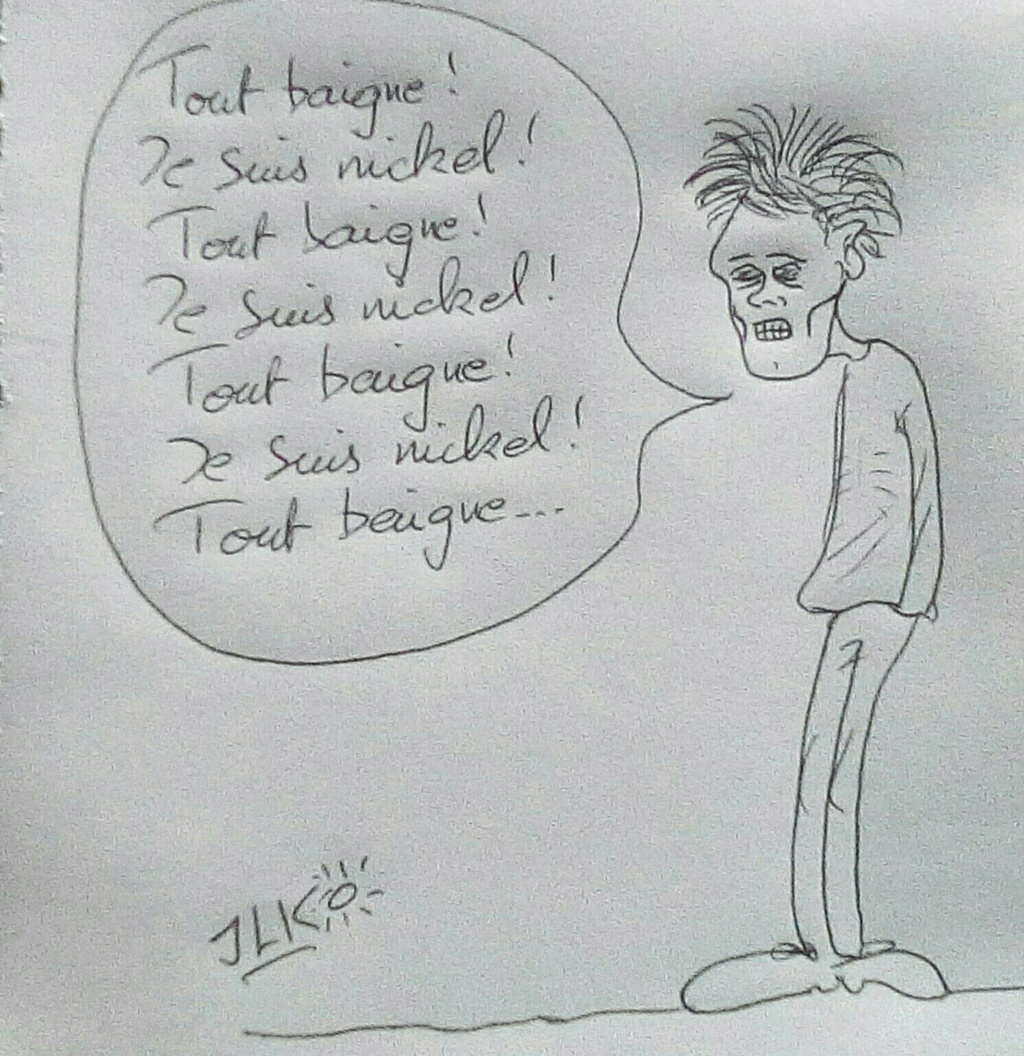 Tout baigne !
Je suis nickel !
Tout baigne !
Je suis nickel !
Tout baigne !
Je suis nickel !
Tout baigne...
JLKO